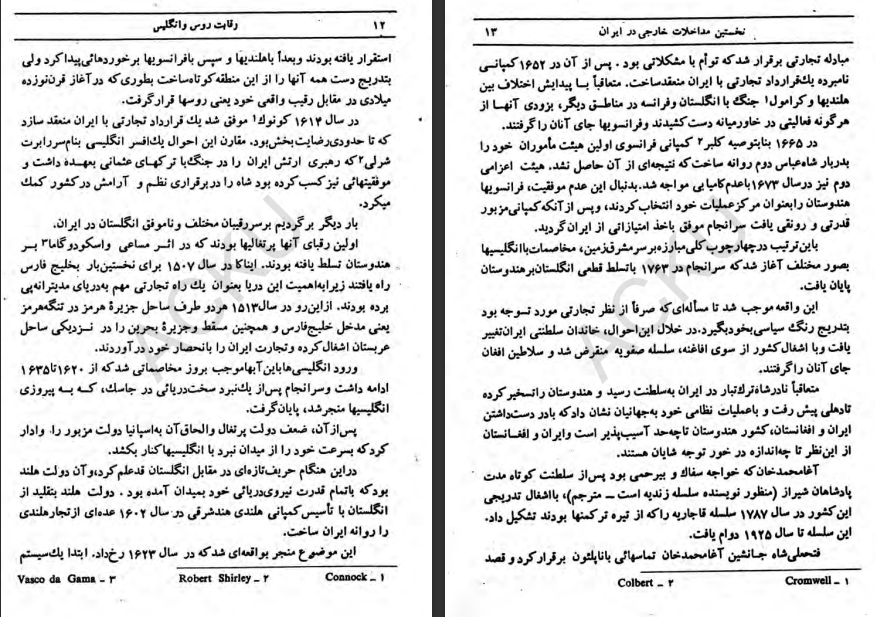 ۱۲ رقابت روس و انگلیس
استقرار یافته بودند وبعداً باهلندیها و سپس بافرانسویها برخوردهائی‌پیداکرد ولی
بتدریج دست همه آنها را از این منطقه کوتاه‌ساخت بطوری‌که درآغاز قرن‌نوزده
میلادی در مقابل رقیب واقعی خود یعنی روسها قرارگرفت.
در سال ۱۶۱۴ کونوك۱ موفق شد یك قرارداد تجارتی با ایران منعقد سازد
که تا حدودی‌رضایت‌بخش‌بود. مقارن این احوال یك‌افسر انگلیسی بنام‌سررابرت
شرلی۲که رهبری ارتش ایران را در جنگ‌با ترکهای عثمانی بعهده داشت و
موفقیتهائی نیزکسب کرده بود شاه را دربرقراری نظم و آرامش درکشور کمك
میکرد.
بار دیگر برگردیم برسررقیبان مختلف وناموفق انگلستان در ایران.
اولین رقبای آنها پرتغالیها بودند که در اثـر مساعی واسکودوگاما۳ بـر
هندوستان تسلط یافته بودند. ایناکا در سال ۱۵۰۷ برای نخستین‌بار بخلیج فارس
راه یافتند زیرابه‌اهمیت این دریا بعنوان یك راه تجارتی مهم به‌دریای مدیترانه‌پی
برده بودند. ازاین‌رو در سال۱۵۱۳ هردو طرف ساحل جزیرهٔ هرمز در تنگه‌هرمز
یعنی مدخل خلیج‌فارس و همچنین مسقط وجزیرهٔ بحرین را در نـزدیکی ساحل
عربستان اشغال‌کرده وتجارت ایران را بانحصار خود درآوردند.
ورود انگلیسی‌هاباین‌آبهاموجب بروز مخاصماتی شدکه از ۱۶۲۰تا۱۶۳۵
ادامه داشت وسرانجام پس‌از یك‌نبرد سخت‌دریائی در جاسك، کـه بـه پیروزی
انگلیسیها منجرشد، پایان‌گرفت.
پس‌ازآن، ضعف دولت پرتغال والحاق‌آن به‌اسپانیا دولت مزبور را وادار
کردکه بسرعت خود را از میدان نبرد با انگلیسیهاکنار بکشد.
دراین هنگام حریف‌تازه‌ای در مقابل انگلستان قدعلم‌کرد،وآن دولت هلند
بودکه باتمام قدرت نیروی‌دریائی خود بمیدان آمده بود. دولت هلند بتقلید از
انگلستان با تأسیس‌کمپانی هلندی هندشرقی در سال ۱۶۰۲ عده‌ای ازتجارهلندی
را روانه ایران ساخت.
این موضوع منجر بواقعه‌ای شدکه در سال ۱۶۲۳ رخ‌داد. ابتدا یك‌سیستم
۱ ـ Connock ۲ ـ Robert Shirley ۳ ـ Vasco da Gama
نخستین مداخلات خارجی در ایران ۱۳
مبادله تجارتی برقرار شدکه توأم با مشکلاتی بود. پس از آن در ۱۶۵۲کمپانـی
نامبرده یك‌قرارداد تجارتی با ایران منعقدساخت. متعاقباً بـا پیدایش اختلاف بین
هلندیها وکرامول۱ جنگ با انگلستان وفرانسه در مناطق دیگر، بزودی آنهـا از
هرگونه فعالیتی در خاورمیانه دست‌کشیدند وفرانسویها جای آنان را گرفتند.
در ۱۶۶۵ بنابتوصیه کلبر۲ کمپانی فرانسوی اولین هیئت مأموران خود را
بدربار شاه‌عباس دوم روانه ساخت‌که نتیجه‌ای از آن حاصل نشد. هیئت اعزامی
دوم نیز درسال ۱۶۷۳باعدم‌کامیابی مواجه شد.بدنبال این عدم موفقیت، فرانسویها
هندوستان رابعنوان مرکزعملیات خود انتخاب‌کردند، وپس ازآنکه کمپانی‌مزبور
قدرتی و رونقی یافت سرانجام موفق باخذ امتیازاتی از ایران‌گردید.
باین‌ترتیب درچهارچوب کلی‌مبارزه‌برسرمشرق‌زمین، مخاصمات‌باانگلیسیها
بصور مختلف آغاز شدکه سرانجام در ۱۷۶۳ باتسلط قطعی انگلستان‌برهندوستان
پایان یافت.
این واقعه‌موجب شد تا مسأله‌ای‌که صرفاً از نظر تجارتی مورد تـوجه بود
بتدریج رنگ سیاسی‌بخودبگیرد.در خلال این‌احوال، خاندان سلطنتی ایران‌تغییر
یافت وبا اشغال‌کشور از سوی افاغنه، سلسله صفویه منقرض شد و سلاطین افغان
جای آنان راگرفتند.
متعاقباً نادرشاه‌ترك‌تبار در ایران به‌سلطنت رسید و هندوستان راتسخیرکرده
تادهلی پیش رفت و باعملیات نظامی خود به‌جهانیان نشان دادکه بادر دست‌داشتن
ایران و افغانستان،کشور هندوستان تاچه‌حد آسیب‌پذیر است وایران و افغـانستان
از این‌نظر تا چه‌اندازه در خور توجه شایان هستند.
آغامحمدخان‌که خواجه سفاك و بیرحمی بود پس‌از سلطنت کوتاه مدت
پادشاهان شیراز (منظور نویسنده سلسله زندیه است ـ مترجم)، بااشغال تدریجی
این‌کشور در سال ۱۷۸۷ سلسله قاجاریه راکه از تیره ترکمنها بودند تشکیل داد.
این سلسله تا سال ۱۹۲۵ دوام یافت.
فتحعلی‌شاه جـانشین آغامحمدخان تماسهائی باناپلئون برقرارکرد و قصد
۱ ـ Cromwell ۲ ـ Colbert
ACKU
ACKU